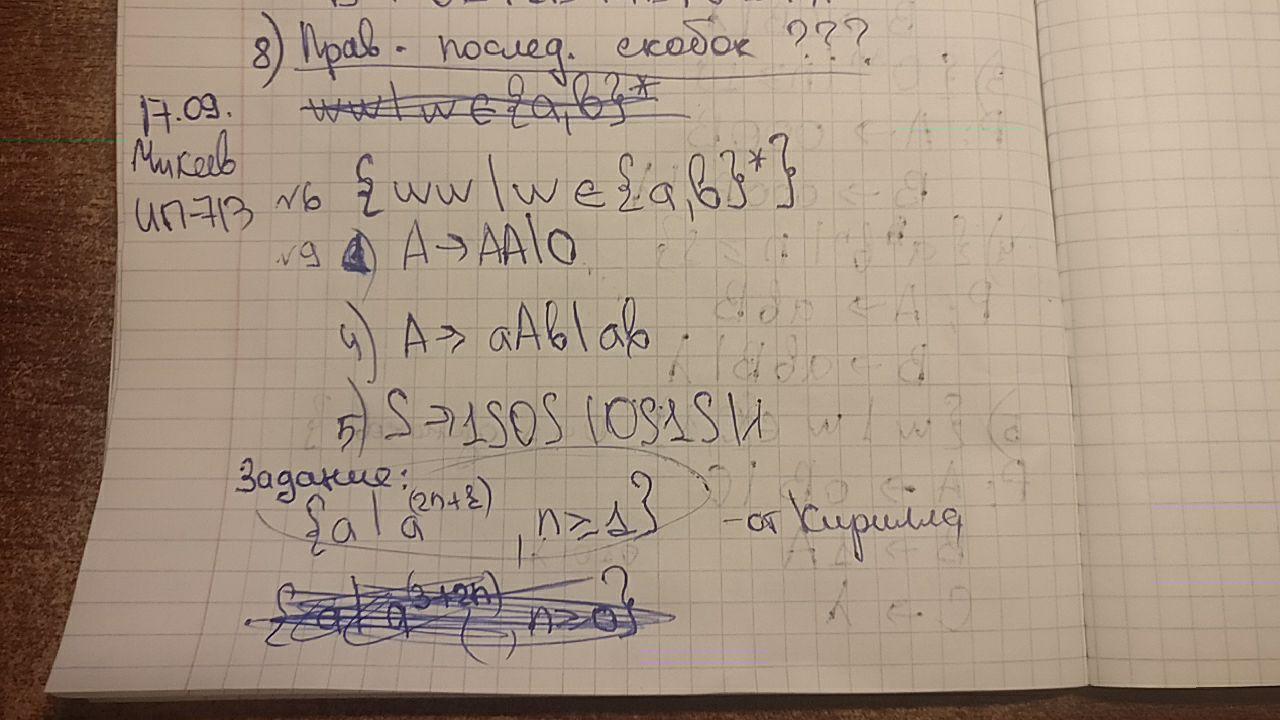 8) Прав. послед. скобок ???
ww | w ∈ {a,b}*
17.09.
Микеев
ИП-713
№6 {ww | w ∈ {a,b}*}
№9 1) A → AA | 0
4) A → aAb | ab
5) S → 1S0S | 0S1S | λ
Задание:
{a | a , n ≥ 1} - от Кирилла
{a | a^(3+2n) , n ≥ 0}